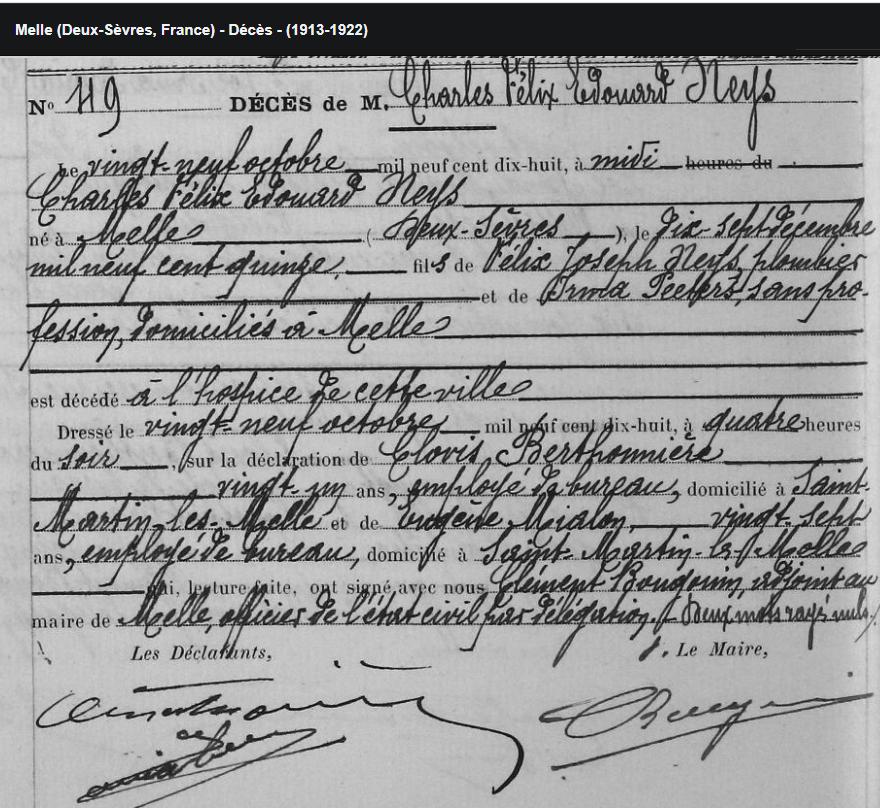 Melle (Deux-Sèvres, France) - Décès - (1913-1922)
N° 49 DÉCÈS de M. Charles Félix Edouard Neys
Le vingt-neuf octobre mil neuf cent dix-huit, à midi heures du
Charles Félix Edouard Neys
né à Melle ( Deux-Sèvres ), le dix-sept décembre
mil neuf cent quinze, fils de Félix Joseph Neys, plombier
et de Irma Peeters, sans pro-
fession, domiciliés à Melle
est décédé à l'hospice de cette ville
Dressé le vingt-neuf octobre mil neuf cent dix-huit, à quatre heures
du soir, sur la déclaration de Clovis Berthonnière
vingt-un ans, employé de bureau, domicilié à Saint-
Martin-les-Melle et de Eugène Mialon, vingt-sept
ans, employé de bureau, domicilié à Saint-Martin-les-Melle
qui, lecture faite, ont signé avec nous Clément Bougouin, adjoint au
maire de Melle, officier de l'état civil par délégation. Deux mots rayés nuls.
Les Déclarants, Le Maire,